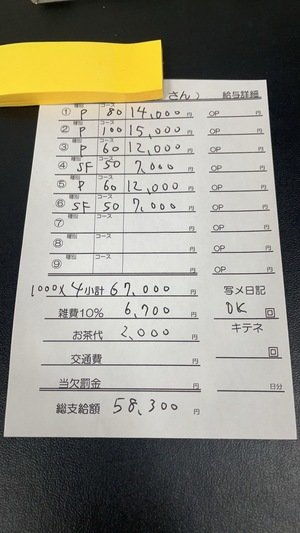 さん) 給与詳細
① 種別 P コース 80 14,000円 OP 円
② 種別 P コース 100 15,000円 OP 円
③ 種別 P コース 60 12,000円 OP 円
④ 種別 SF コース 50 7,000円 OP 円
⑤ 種別 P コース 60 12,000円 OP 円
⑥ 種別 SF コース 50 7,000円 OP 円
⑦ 種別 コース 円 OP 円
⑧ 種別 コース 円 OP 円
⑨ 種別 コース 円 OP 円
1000×4 小計 67,000円 写メ日記
雑費10% 6,700円 DK 回
お茶代 2,000円 キテネ
交通費 円 回
当欠罰金 円 日分
総支給額 58,300円